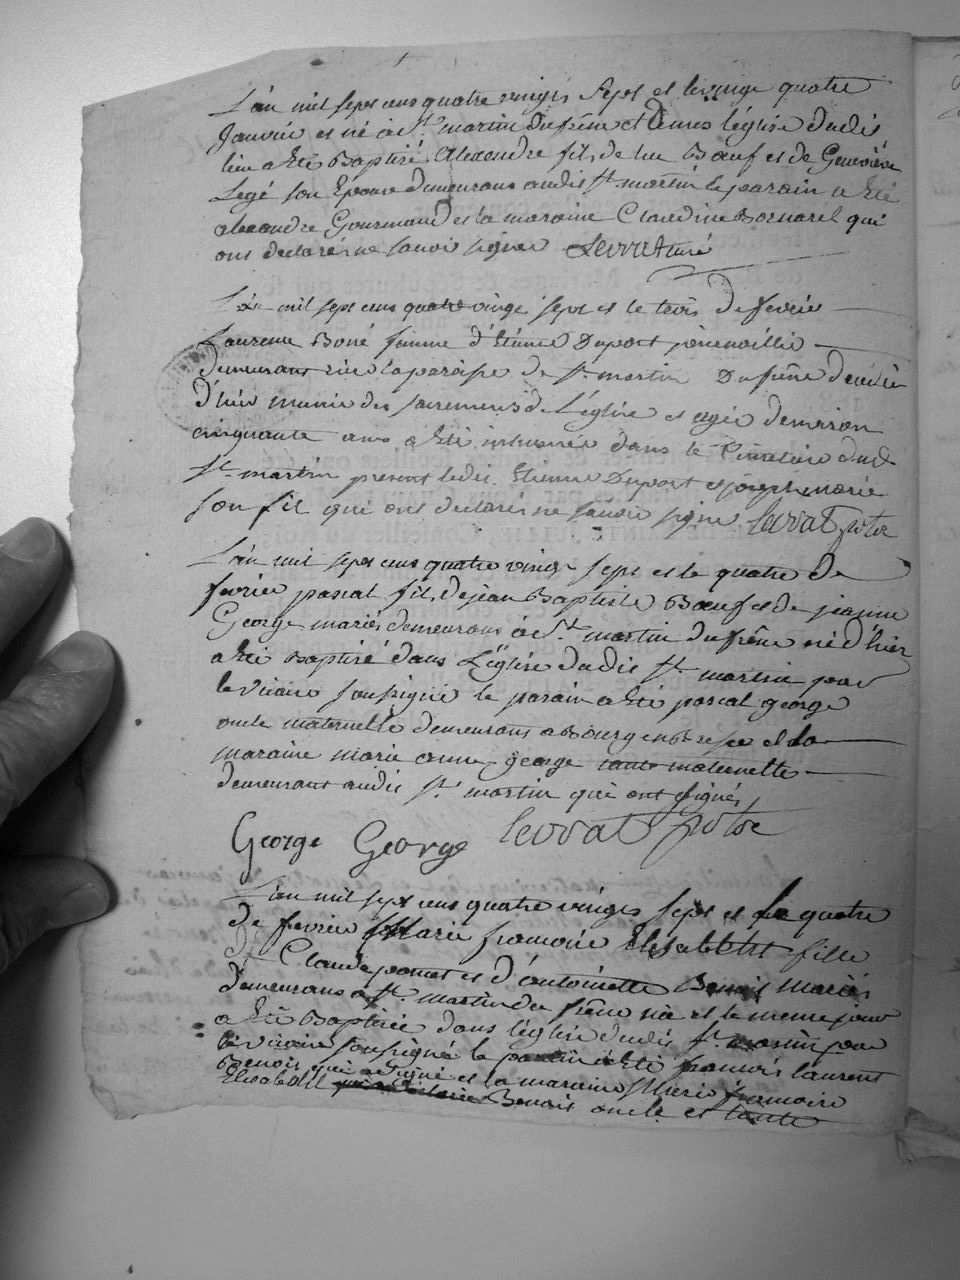 L'an mil sept cens quatre vingts sept et le vingt quatre
Janvier est né à St martin Dufrêne et dans l'église dudit
lieu a été Baptisé Alexandre fils de luc Bœuf et de Geneviève
Legé son Epouse demeurans audit St martin le parain a été
alexandre Gourmand et la maraine Claudine Bornarel qui
ont declarés ne savoir signer Levrat curé
L'an mil sept cens quatre vingt sept et le trois de fevrier
Laurence Boné femme d'Etienne Dupont
demeurant riere la paroisse de St martin Dufrêne decedée
d'hier munie des sacremens de L'église et agée denviron
cinquante ans a été inhumée dans le Cimetiere dudit
St martin present ledit Etienne Dupont et joseph marie
son fils qui ont declarés ne savoir signer levrat
L'an mil sept cens quatre vingt sept et le quatre de
fevrier pascal fils de jean Baptiste Bœuf et de jeanne
George mariés demeurans à St martin dufrêne né d'hier
a été Baptisé dans L'église dudit St martin par
le vicaire soussigné le parain a été pascal george
oncle maternelle demeurans a Bourg en bresse et la
maraine marie anne george tante maternelle
demeurant audit St martin qui ont signés
George George levrat
L'an mil sept cens quatre vingts sept et le quatre
de fevrier Marie françoise Elisabeth fille
De Claude ponet et d'antoinette Benoit mariés
demeurans a St martin du frêne née et le meme jour
a été Baptisée dans l'église dudit St martin par
le vicaire soussigné le parain a été françois laurent
Benoit qui a signé et la maraine Marie françoise
Elisabeth Benoit oncle et tante